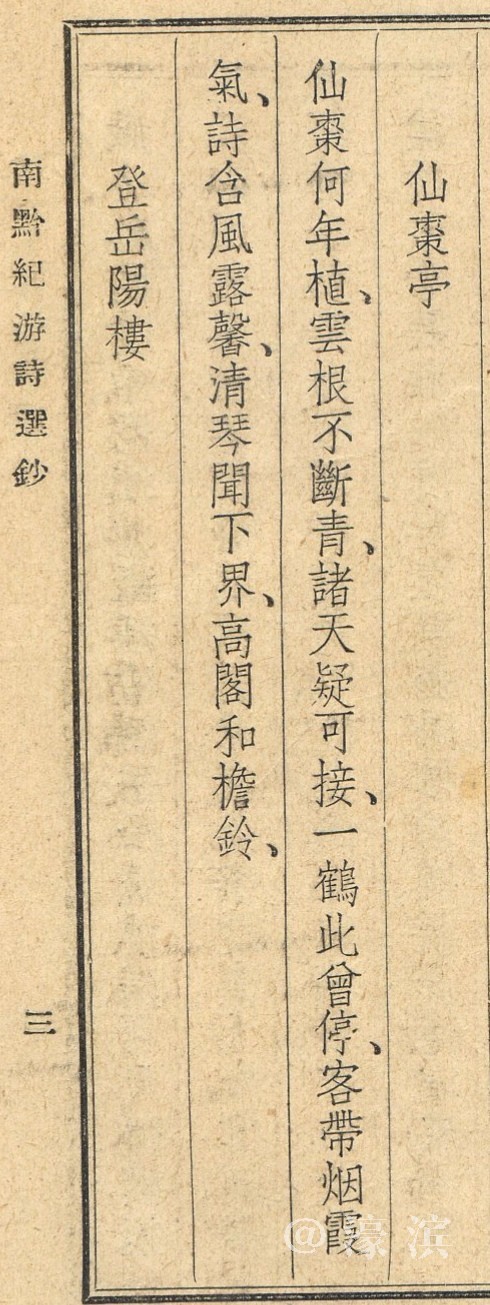 仙棗亭
仙棗何年植、雲根不斷青、諸天疑可接、一鶴此曾停、客帶烟霞
氣、詩含風露馨、清琴聞下界、高閣和檐鈴、
登岳陽樓
南黔紀游詩選鈔
三
@濠滨